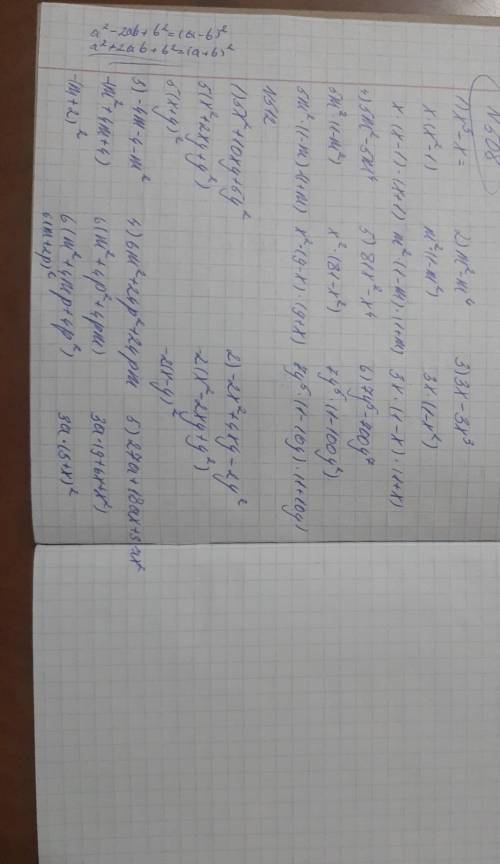 a²-2ab+b²=(a-b)²
a²+2ab+b²=(a+b)²
1) x³-x=
x·(x²-1)
x·(x-1)·(x+1)
2) m²-m⁴
m²(1-m²)
m²(1-m)·(1+m)
3) 3x-3x³
3x·(1-x²)
3x·(1-x)·(1+x)
5m²·(1-m²)
5m²·(1-m)·(1+m)
5) 81x²-x⁴
x²·(81-x²)
x²·(9-x)·(9+x)
6) 7y⁵-700y⁷
7y⁵·(1-100y²)
7y⁵·(1-10y)·(1+10y)
1) 5x²+10xy+5y²
5(x²+2xy+y²)
5(x+y)²
2) -2x²+4xy-2y²
-2(x²-2xy+y²)
-2(x-y)²
3) -4m-4-m²
-m²+4m+4)
-m+2)²
4) 6m²+24p²+24pm
6(m²+4p²+4pm)
6(m²+4mp+4p²)
6(m+2p)²
5) 27a+18ax+3ax²
3a·(9+6x+x²)